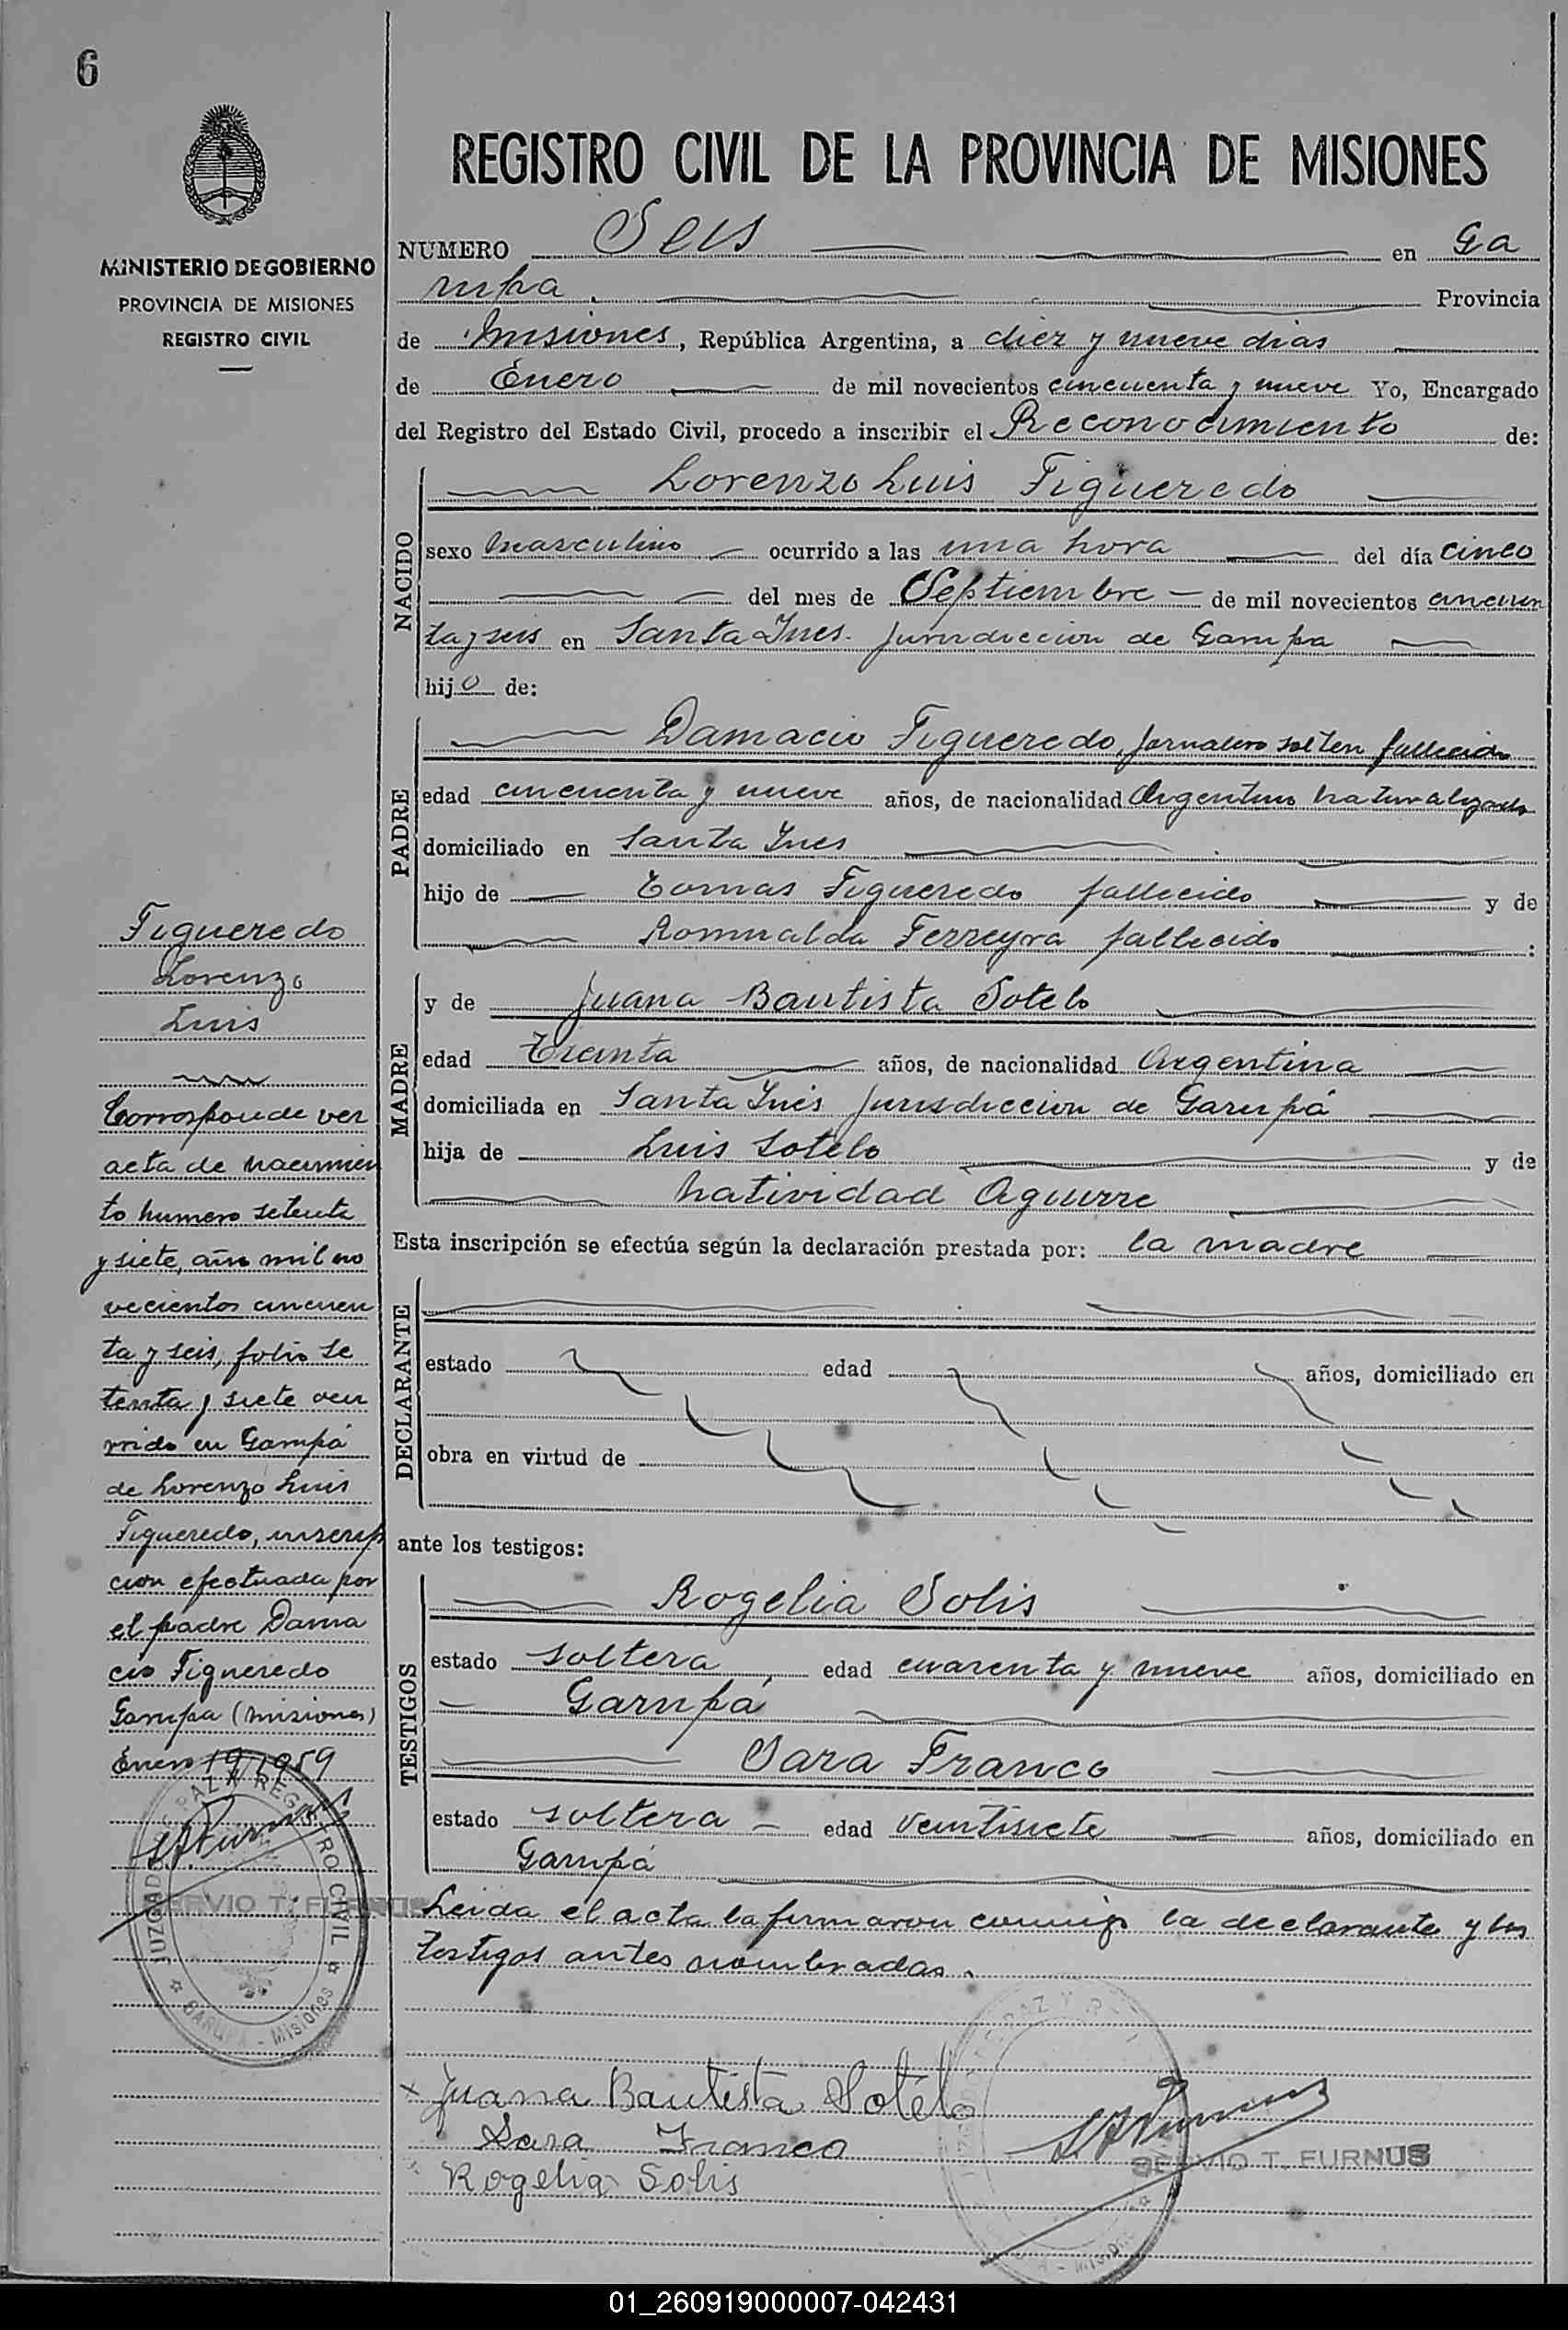 6
MINISTERIO DE GOBIERNO
PROVINCIA DE MISIONES
REGISTRO CIVIL
REGISTRO CIVIL DE LA PROVINCIA DE MISIONES
NUMERO Seis en Ga
rupa. Provincia
de Misiones, República Argentina, a diez y nueve dias
de Enero de mil novecientos cincuenta y nueve Yo, Encargado
del Registro del Estado Civil, procedo a inscribir el Reconocimiento de:
NACIDO
Lorenzo Luis Figueredo
sexo masculino ocurrido a las una hora del día cinco
del mes de Septiembre de mil novecientos cincuen
ta y seis en Santa Ines. Jurisdiccion de Garupa
hijo de:
PADRE
Damacio Figueredo, jornalero fallecido
edad cincuenta y nueve años, de nacionalidad Argentino naturalizado
domiciliado en Santa Ines
hijo de Tomas Figueredo fallecido y de
Romualda Ferreyra fallecida :
MADRE
y de Juana Bautista Sotelo
edad Treinta años, de nacionalidad Argentina
domiciliada en Santa Inés Jurisdiccion de Garupá
hija de Luis Sotelo y de
Natividad Aguirre
Esta inscripción se efectúa según la declaración prestada por: la madre
DECLARANTE
estado edad años, domiciliado en
obra en virtud de
ante los testigos:
TESTIGOS
Rogelia Solis
estado soltera, edad cuarenta y nueve años, domiciliado en
Garupá
Sara Franco
estado soltera edad veintisiete años, domiciliado en
Garupá
Leida el acta la firmaron conmigo la declarante y los
testigos antes nombradas.
Juana Bautista Sotélo
Sara Franco
Rogelia Solis
SERVIO T. FURNUS
Figueredo
Lorenzo
Luis
Corresponde ver
acta de nacimien
to numero setenta
y siete, año mil no
vecientos cincuen
ta y seis, folio se
tenta y siete ocu
rrido en Garupá
de Lorenzo Luis
Figueredo, inscrip
cion efectuada por
el padre Dama
cio Figueredo
Garupa (Misiones)
Enero 19/1959
SERVIO T. FURNUS
JUZGADO DE PAZ Y REGISTRO CIVIL
GARUPA - Misiones
01_260919000007-042431